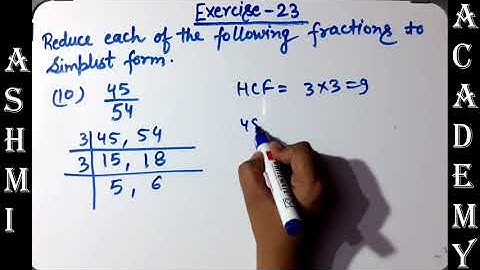 Exercise-23
Reduce each of the following fractions to
Simplist form.
(10) 45/54
HCF = 3×3=9
3 45, 54
3 15, 18
5, 6
45
ASHMI
ACADEMY